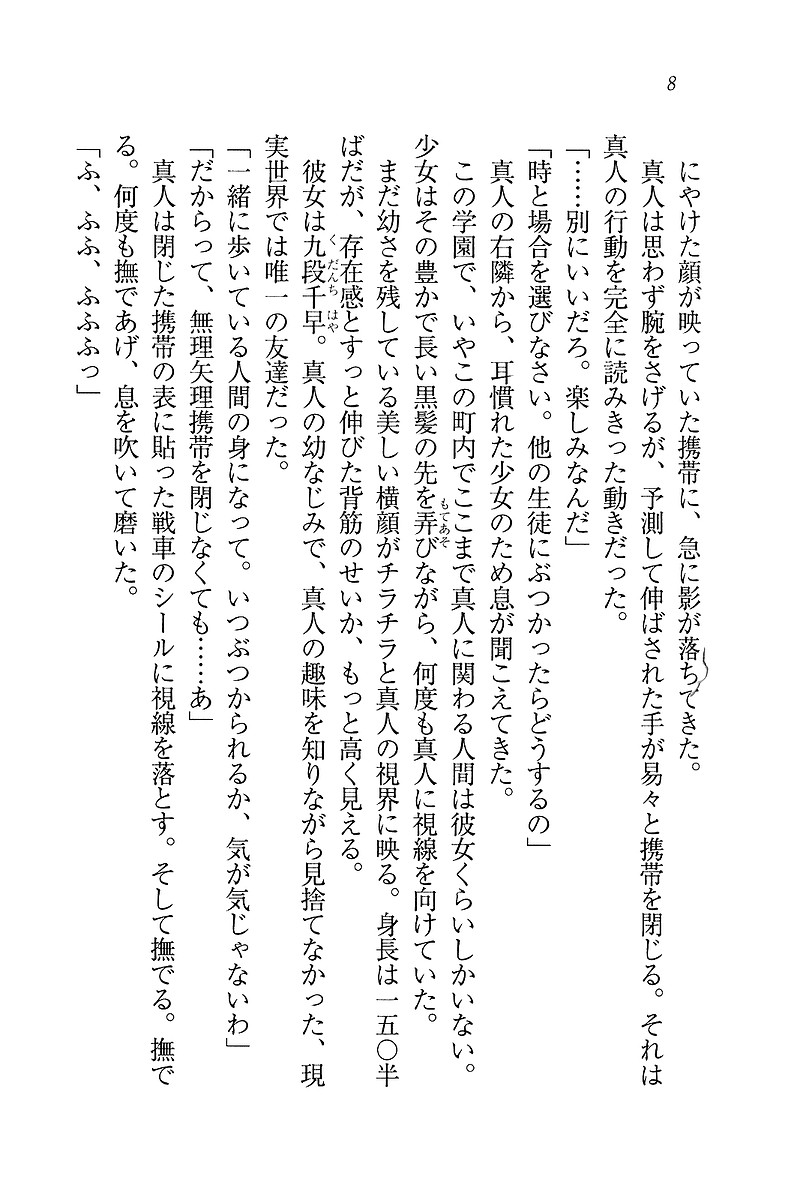 8
にやけた顔が映っていた携帯に、急に影が落ちてきた。
真人は思わず腕をさげるが、予測して伸ばされた手が易々と携帯を閉じる。それは
真人の行動を完全に読みきった動きだった。
「……別にいいだろ。楽しみなんだ」
「時と場合を選びなさい。他の生徒にぶつかったらどうするの」
真人の右隣から、耳慣れた少女のため息が聞こえてきた。
この学園で、いやこの町内でここまで真人に関わる人間は彼女くらいしかいない。
少女はその豊かで長い黒髪の先を弄びながら、何度も真人に視線を向けていた。
もてあそ
まだ幼さを残している美しい横顔がチラチラと真人の視界に映る。身長は一五〇半
ばだが、存在感とすっと伸びた背筋のせいか、もっと高く見える。
彼女は九段千早。真人の幼なじみで、真人の趣味を知りながら見捨てなかった、現
くだんちはや
実世界では唯一の友達だった。
「一緒に歩いている人間の身になって。いつぶつかられるか、気が気じゃないわ」
「だからって、無理矢理携帯を閉じなくても……あ」
真人は閉じた携帯の表に貼った戦車のシールに視線を落とす。そして撫でる。撫で
る。何度も撫であげ、息を吹いて磨いた。
「ふ、ふふ、ふふふっ」